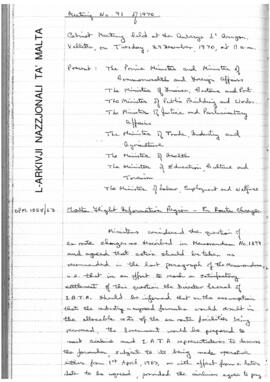 Meeting No 91 of 1970
Cabinet Meeting held at the Auberge d'Aragon,
Valletta, on Tuesday, 29 December, 1970, at 11 a.m.
Present: The Prime Minister and Minister of
Commonwealth and Foreign Affairs
The Minister of Finance, Customs and Port
The Minister of Public Building and Works
The Minister of Justice and Parliamentary
Affairs
The Minister of Trade, Industry and
Agriculture
The Minister of Health
The Minister of Education, Culture and
Tourism
The Minister of Labour, Employment and Welfare
L-ARKIVJI NAZZJONALI TA MALTA
OPM 1058/63
Malta Flight Information Region - En Route Charges
Ministers considered the question of
en route charges as described in Memorandum No 1899
and agreed that action should be taken as
recommended in the last paragraph of the Memorandum,
i.e. that in an effort to reach a satisfactory
settlement of this question the Director General of
I.A.T.A. should be informed that on the assumption
that the industry-required formula would result in
the allocable costs of the en route facilities being
recovered, the Government would be prepared to
meet airlines and I.A.T.A. representatives to discuss
the formulae, subject to its being made operative
from 1st April, with effect from a later
date to be agreed, provided the airlines agree to pay